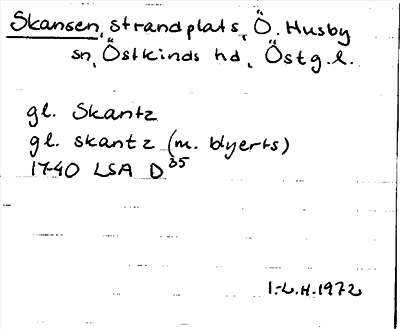 Skansen, strandplats, Ö. Husby
sn, Östkinds hd, Östg.l.
gl. Skantz
gl. skantz (m. blyerts)
1740 LSA D 35
I-L.H.1972